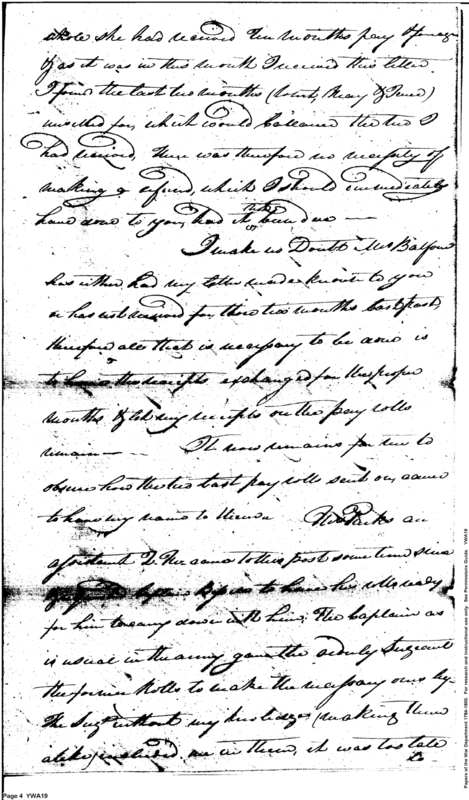 she had received two months pay
as it was in this month I received this letter
I found the last two months (
unsettled for, which would ballance the two I
had received, there was therefore no necessity of
making a refund, which I should immediately
have done to you, had it been due —
I make no Doubt Mr Balfour
has either had my letter made known to you
or has not received for those two months last past,
therefore all that is necessary to be done is
to have the receipts exchanged for the proper
months & let my receipts on the pay rolls
remain — It now remains for me to
observe how the two last pay rolls sent on, came
to have my name to them Mr Parks an
assistant came to this post some time since
to have his rolls ready
for him to carry down with him; The Captain as
is usual in the army gave the orderly Sergeant
the former Rolls to make the necessary ones by.
The Sergt without my knowledge (making them
alike) included me in them, it was too late
to
Page 4 YWA19
Papers of the War Department 1784-1800. For research and instructional use only. See Permissions Guide. YWA19